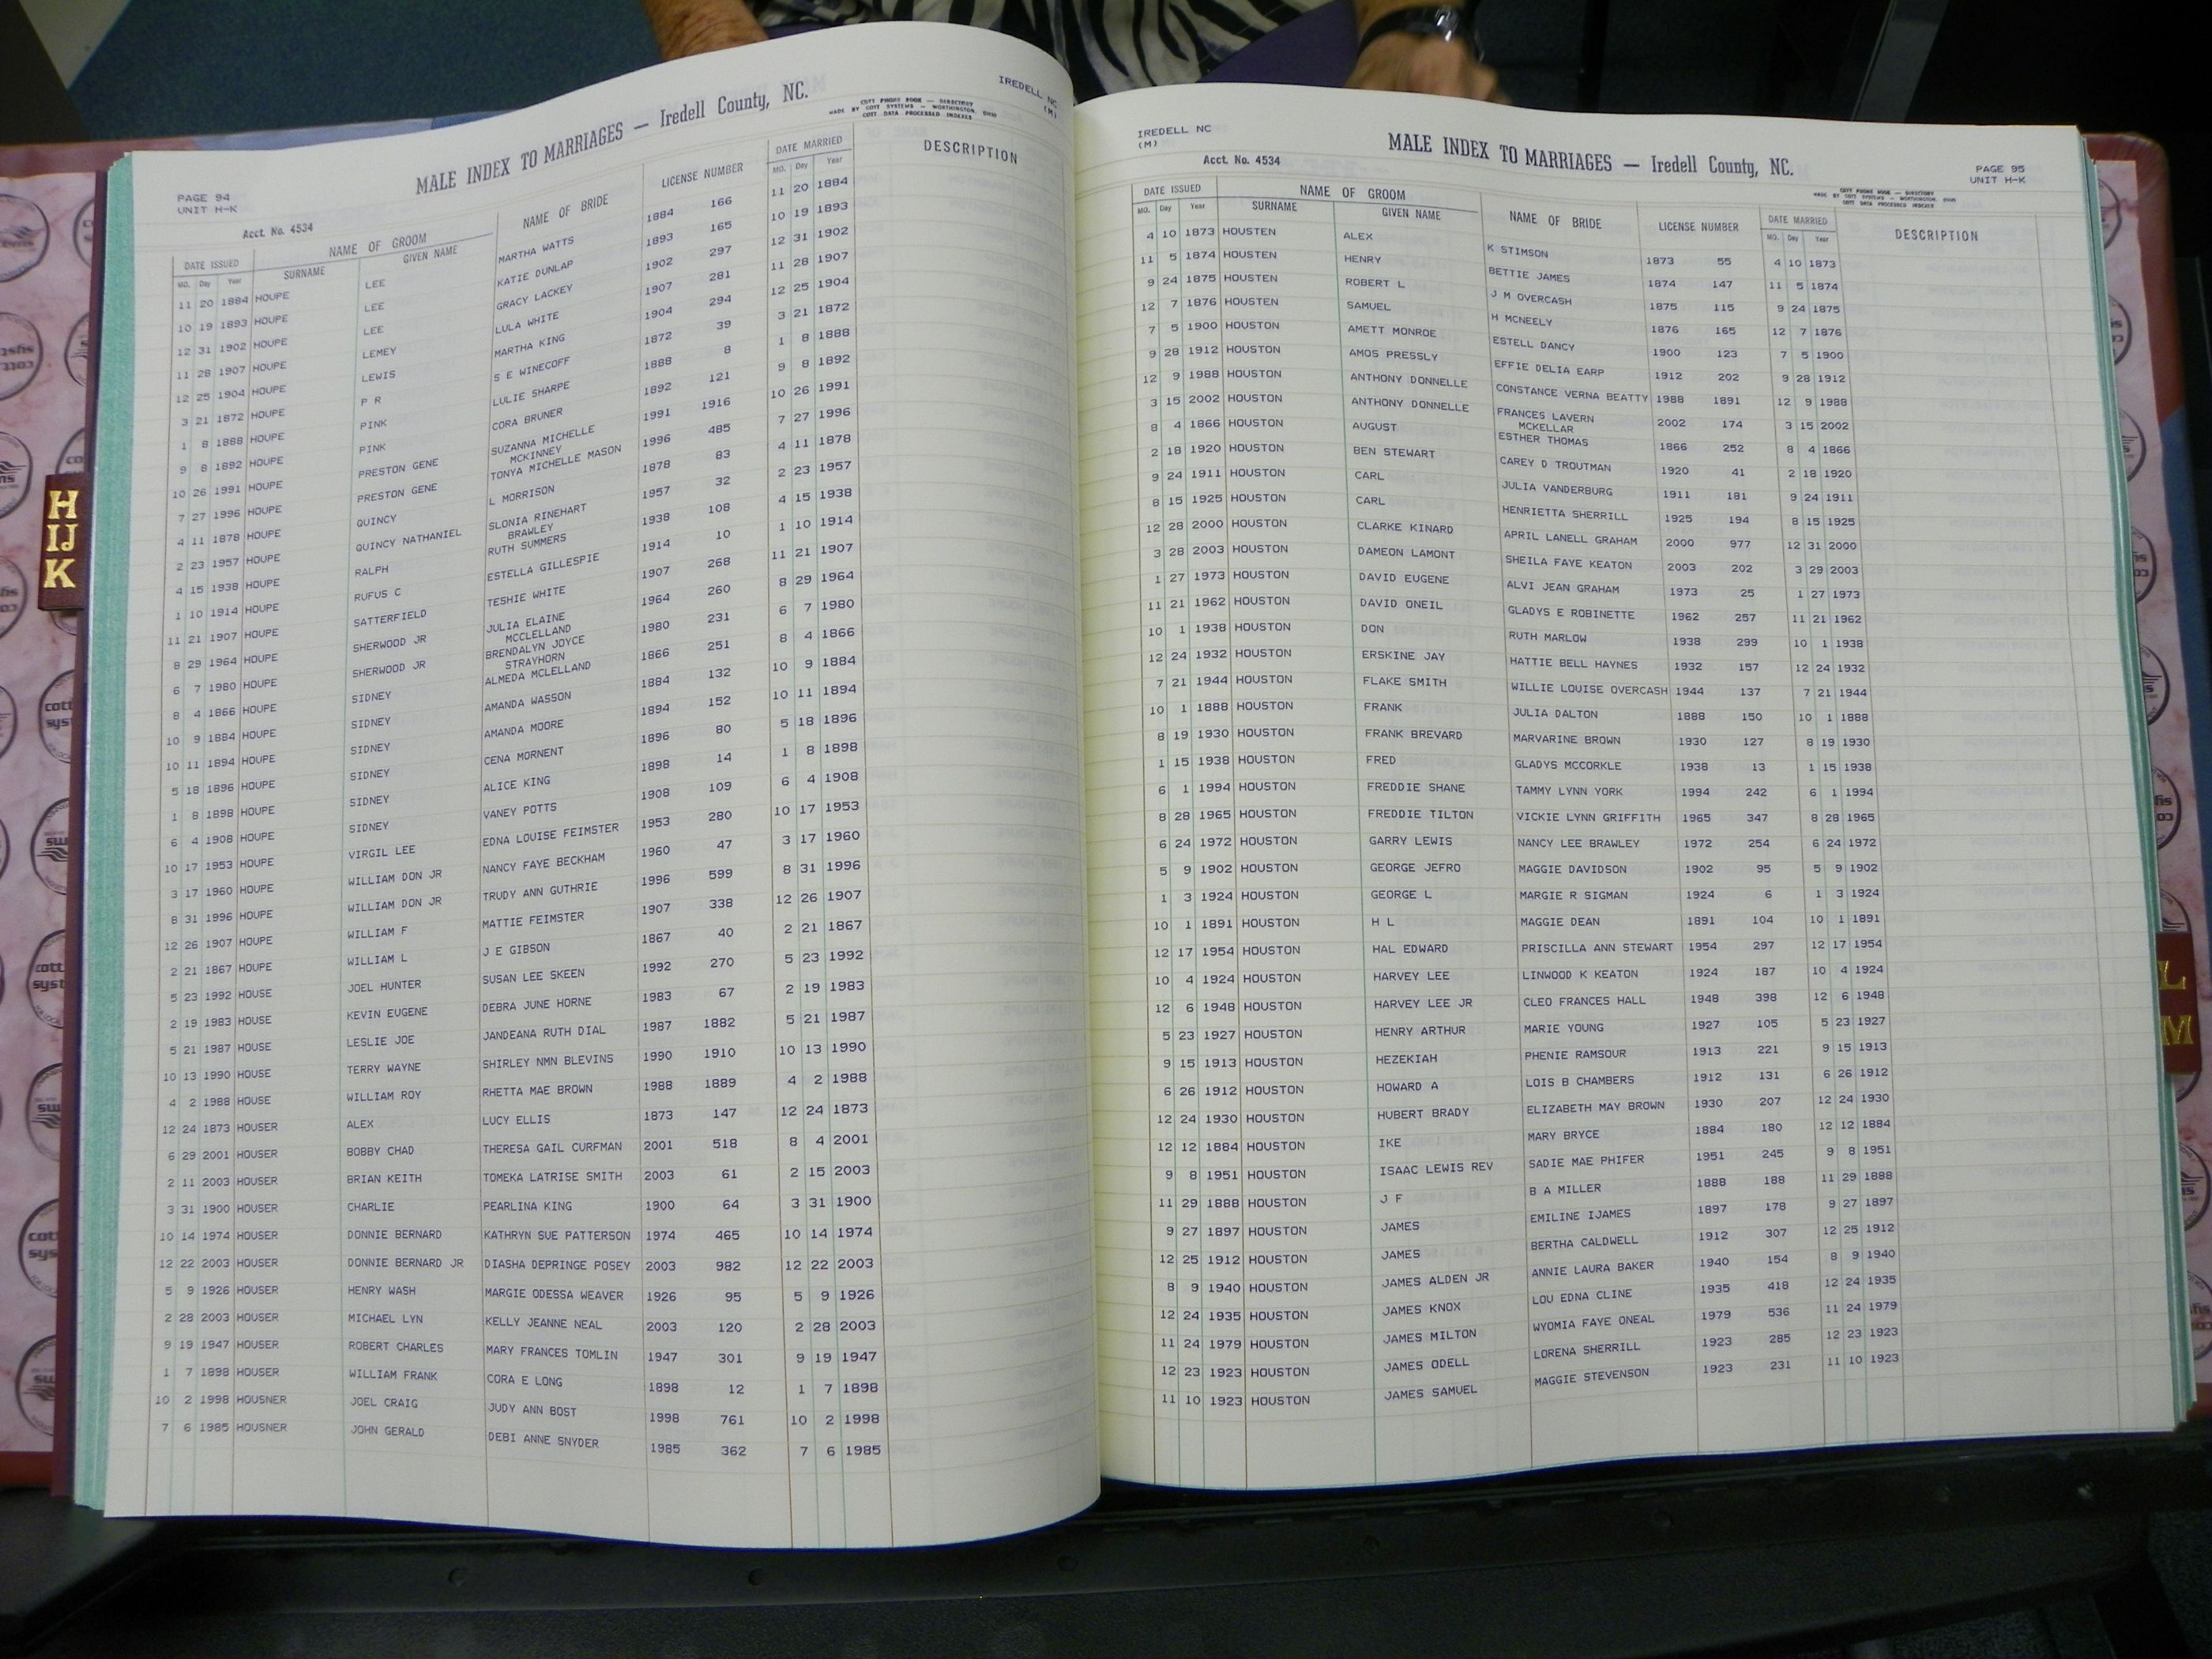 MALE INDEX TO MARRIAGES — Iredell County, NC.
IREDELL NC
(M)
COTT PHONE BOOK — DIRECTORY
MADE BY COTT SYSTEMS — WORTHINGTON,
COTT DATA PROCESSED INDEXES
PAGE 94
UNIT H-K
Acct. No. 4534
DATE ISSUED NAME OF GROOM NAME OF BRIDE LICENSE NUMBER DATE MARRIED DESCRIPTION
MO. Day Year SURNAME GIVEN NAME MO. Day Year
11 20 1884 HOUPE LEE MARTHA WATTS 1884 166 11 20 1884
10 19 1893 HOUPE LEE KATIE DUNLAP 1893 165 10 19 1893
12 31 1902 HOUPE LEE GRACY LACKEY 1902 297 12 31 1902
11 28 1907 HOUPE LEMEY LULA WHITE 1907 281 11 28 1907
12 25 1904 HOUPE LEWIS MARTHA KING 1904 294 12 25 1904
3 21 1872 HOUPE P R S E WINECOFF 1872 39 3 21 1872
1 8 1888 HOUPE PINK LULIE SHARPE 1888 8 1 8 1888
9 8 1892 HOUPE PINK CORA BRUNER 1892 121 9 8 1892
10 26 1991 HOUPE PRESTON GENE SUZANNA MICHELLE 1991 1916 10 26 1991
MCKINNEY
7 27 1996 HOUPE PRESTON GENE TONYA MICHELLE MASON 1996 485 7 27 1996
4 11 1878 HOUPE QUINCY L MORRISON 1878 83 4 11 1878
2 23 1957 HOUPE QUINCY NATHANIEL SLONIA RINEHART 1957 32 2 23 1957
BRAWLEY
4 15 1938 HOUPE RALPH RUTH SUMMERS 1938 108 4 15 1938
1 10 1914 HOUPE RUFUS C ESTELLA GILLESPIE 1914 10 1 10 1914
11 21 1907 HOUPE SATTERFIELD TESHIE WHITE 1907 268 11 21 1907
8 29 1964 HOUPE SHERWOOD JR JULIA ELAINE 1964 260 8 29 1964
MCCLELLAND
6 7 1980 HOUPE SHERWOOD JR BRENDALYN JOYCE 1980 231 6 7 1980
STRAYHORN
8 4 1866 HOUPE SIDNEY ALMEDA MCLELLAND 1866 251 8 4 1866
10 9 1884 HOUPE SIDNEY AMANDA WASSON 1884 132 10 9 1884
10 11 1894 HOUPE SIDNEY AMANDA MOORE 1894 152 10 11 1894
5 18 1896 HOUPE SIDNEY CENA MORNENT 1896 80 5 18 1896
1 8 1898 HOUPE SIDNEY ALICE KING 1898 14 1 8 1898
6 4 1908 HOUPE SIDNEY VANEY POTTS 1908 109 6 4 1908
10 17 1953 HOUPE VIRGIL LEE EDNA LOUISE FEIMSTER 1953 280 10 17 1953
3 17 1960 HOUPE WILLIAM DON JR NANCY FAYE BECKHAM 1960 47 3 17 1960
8 31 1996 HOUPE WILLIAM DON JR TRUDY ANN GUTHRIE 1996 599 8 31 1996
12 26 1907 HOUPE WILLIAM F MATTIE FEIMSTER 1907 338 12 26 1907
2 21 1867 HOUPE WILLIAM L J E GIBSON 1867 40 2 21 1867
5 23 1992 HOUSE JOEL HUNTER SUSAN LEE SKEEN 1992 270 5 23 1992
2 19 1983 HOUSE KEVIN EUGENE DEBRA JUNE HORNE 1983 67 2 19 1983
5 21 1987 HOUSE LESLIE JOE JANDEANA RUTH DIAL 1987 1882 5 21 1987
10 13 1990 HOUSE TERRY WAYNE SHIRLEY NMN BLEVINS 1990 1910 10 13 1990
4 2 1988 HOUSE WILLIAM ROY RHETTA MAE BROWN 1988 1889 4 2 1988
12 24 1873 HOUSER ALEX LUCY ELLIS 1873 147 12 24 1873
6 29 2001 HOUSER BOBBY CHAD THERESA GAIL CURFMAN 2001 518 8 4 2001
2 11 2003 HOUSER BRIAN KEITH TOMEKA LATRISE SMITH 2003 61 2 15 2003
3 31 1900 HOUSER CHARLIE PEARLINA KING 1900 64 3 31 1900
10 14 1974 HOUSER DONNIE BERNARD KATHRYN SUE PATTERSON 1974 465 10 14 1974
12 22 2003 HOUSER DONNIE BERNARD JR DIASHA DEPRINGE POSEY 2003 982 12 22 2003
5 9 1926 HOUSER HENRY WASH MARGIE ODESSA WEAVER 1926 95 5 9 1926
2 28 2003 HOUSER MICHAEL LYN KELLY JEANNE NEAL 2003 120 2 28 2003
9 19 1947 HOUSER ROBERT CHARLES MARY FRANCES TOMLIN 1947 301 9 19 1947
1 7 1898 HOUSER WILLIAM FRANK CORA E LONG 1898 12 1 7 1898
10 2 1998 HOUSNER JOEL CRAIG JUDY ANN BOST 1998 761 10 2 1998
7 6 1985 HOUSNER JOHN GERALD DEBI ANNE SNYDER 1985 362 7 6 1985
IREDELL NC
(M)
Acct. No. 4534
MALE INDEX TO MARRIAGES — Iredell County, NC.
PAGE 95
UNIT H-K
COTT PHONE BOOK — DIRECTORY
MADE BY COTT SYSTEMS — WORTHINGTON,
COTT DATA PROCESSED INDEXES
DATE ISSUED NAME OF GROOM NAME OF BRIDE LICENSE NUMBER DATE MARRIED DESCRIPTION
MO. Day Year SURNAME GIVEN NAME MO. Day Year
4 10 1873 HOUSTEN ALEX K STIMSON 1873 55 4 10 1873
11 5 1874 HOUSTEN HENRY BETTIE JAMES 1874 147 11 5 1874
9 24 1875 HOUSTEN ROBERT L J M OVERCASH 1875 115 9 24 1875
12 7 1876 HOUSTEN SAMUEL H MCNEELY 1876 165 12 7 1876
7 5 1900 HOUSTON AMETT MONROE ESTELL DANCY 1900 123 7 5 1900
9 28 1912 HOUSTON AMOS PRESSLY EFFIE DELIA EARP 1912 202 9 28 1912
12 9 1988 HOUSTON ANTHONY DONNELLE CONSTANCE VERNA BEATTY 1988 1891 12 9 1988
3 15 2002 HOUSTON ANTHONY DONNELLE FRANCES LAVERN 2002 174 3 15 2002
MCKELLAR
8 4 1866 HOUSTON AUGUST ESTHER THOMAS 1866 252 8 4 1866
2 18 1920 HOUSTON BEN STEWART CAREY D TROUTMAN 1920 41 2 18 1920
9 24 1911 HOUSTON CARL JULIA VANDERBURG 1911 181 9 24 1911
8 15 1925 HOUSTON CARL HENRIETTA SHERRILL 1925 194 8 15 1925
12 28 2000 HOUSTON CLARKE KINARD APRIL LANELL GRAHAM 2000 977 12 31 2000
3 28 2003 HOUSTON DAMEON LAMONT SHEILA FAYE KEATON 2003 202 3 29 2003
1 27 1973 HOUSTON DAVID EUGENE ALVI JEAN GRAHAM 1973 25 1 27 1973
11 21 1962 HOUSTON DAVID ONEIL GLADYS E ROBINETTE 1962 257 11 21 1962
10 1 1938 HOUSTON DON RUTH MARLOW 1938 299 10 1 1938
12 24 1932 HOUSTON ERSKINE JAY HATTIE BELL HAYNES 1932 157 12 24 1932
7 21 1944 HOUSTON FLAKE SMITH WILLIE LOUISE OVERCASH 1944 137 7 21 1944
10 1 1888 HOUSTON FRANK JULIA DALTON 1888 150 10 1 1888
8 19 1930 HOUSTON FRANK BREVARD MARVARINE BROWN 1930 127 8 19 1930
1 15 1938 HOUSTON FRED GLADYS MCCORKLE 1938 13 1 15 1938
6 1 1994 HOUSTON FREDDIE SHANE TAMMY LYNN YORK 1994 242 6 1 1994
8 28 1965 HOUSTON FREDDIE TILTON VICKIE LYNN GRIFFITH 1965 347 8 28 1965
6 24 1972 HOUSTON GARRY LEWIS NANCY LEE BRAWLEY 1972 254 6 24 1972
5 9 1902 HOUSTON GEORGE JEFRO MAGGIE DAVIDSON 1902 95 5 9 1902
1 3 1924 HOUSTON GEORGE L MARGIE R SIGMAN 1924 6 1 3 1924
10 1 1891 HOUSTON H L MAGGIE DEAN 1891 104 10 1 1891
12 17 1954 HOUSTON HAL EDWARD PRISCILLA ANN STEWART 1954 297 12 17 1954
10 4 1924 HOUSTON HARVEY LEE LINWOOD K KEATON 1924 187 10 4 1924
12 6 1948 HOUSTON HARVEY LEE JR CLEO FRANCES HALL 1948 398 12 6 1948
5 23 1927 HOUSTON HENRY ARTHUR MARIE YOUNG 1927 105 5 23 1927
9 15 1913 HOUSTON HEZEKIAH PHENIE RAMSOUR 1913 221 9 15 1913
6 26 1912 HOUSTON HOWARD A LOIS B CHAMBERS 1912 131 6 26 1912
12 24 1930 HOUSTON HUBERT BRADY ELIZABETH MAY BROWN 1930 207 12 24 1930
12 12 1884 HOUSTON IKE MARY BRYCE 1884 180 12 12 1884
9 8 1951 HOUSTON ISAAC LEWIS REV SADIE MAE PHIFER 1951 245 9 8 1951
11 29 1888 HOUSTON J F B A MILLER 1888 188 11 29 1888
9 27 1897 HOUSTON JAMES EMILINE IJAMES 1897 178 9 27 1897
12 25 1912 HOUSTON JAMES BERTHA CALDWELL 1912 307 12 25 1912
8 9 1940 HOUSTON JAMES ALDEN JR ANNIE LAURA BAKER 1940 154 8 9 1940
12 24 1935 HOUSTON JAMES KNOX LOU EDNA CLINE 1935 418 12 24 1935
11 24 1979 HOUSTON JAMES MILTON WYOMIA FAYE ONEAL 1979 536 11 24 1979
12 23 1923 HOUSTON JAMES ODELL LORENA SHERRILL 1923 285 12 23 1923
11 10 1923 HOUSTON JAMES SAMUEL MAGGIE STEVENSON 1923 231 11 10 1923
H
IJ
K
L
M